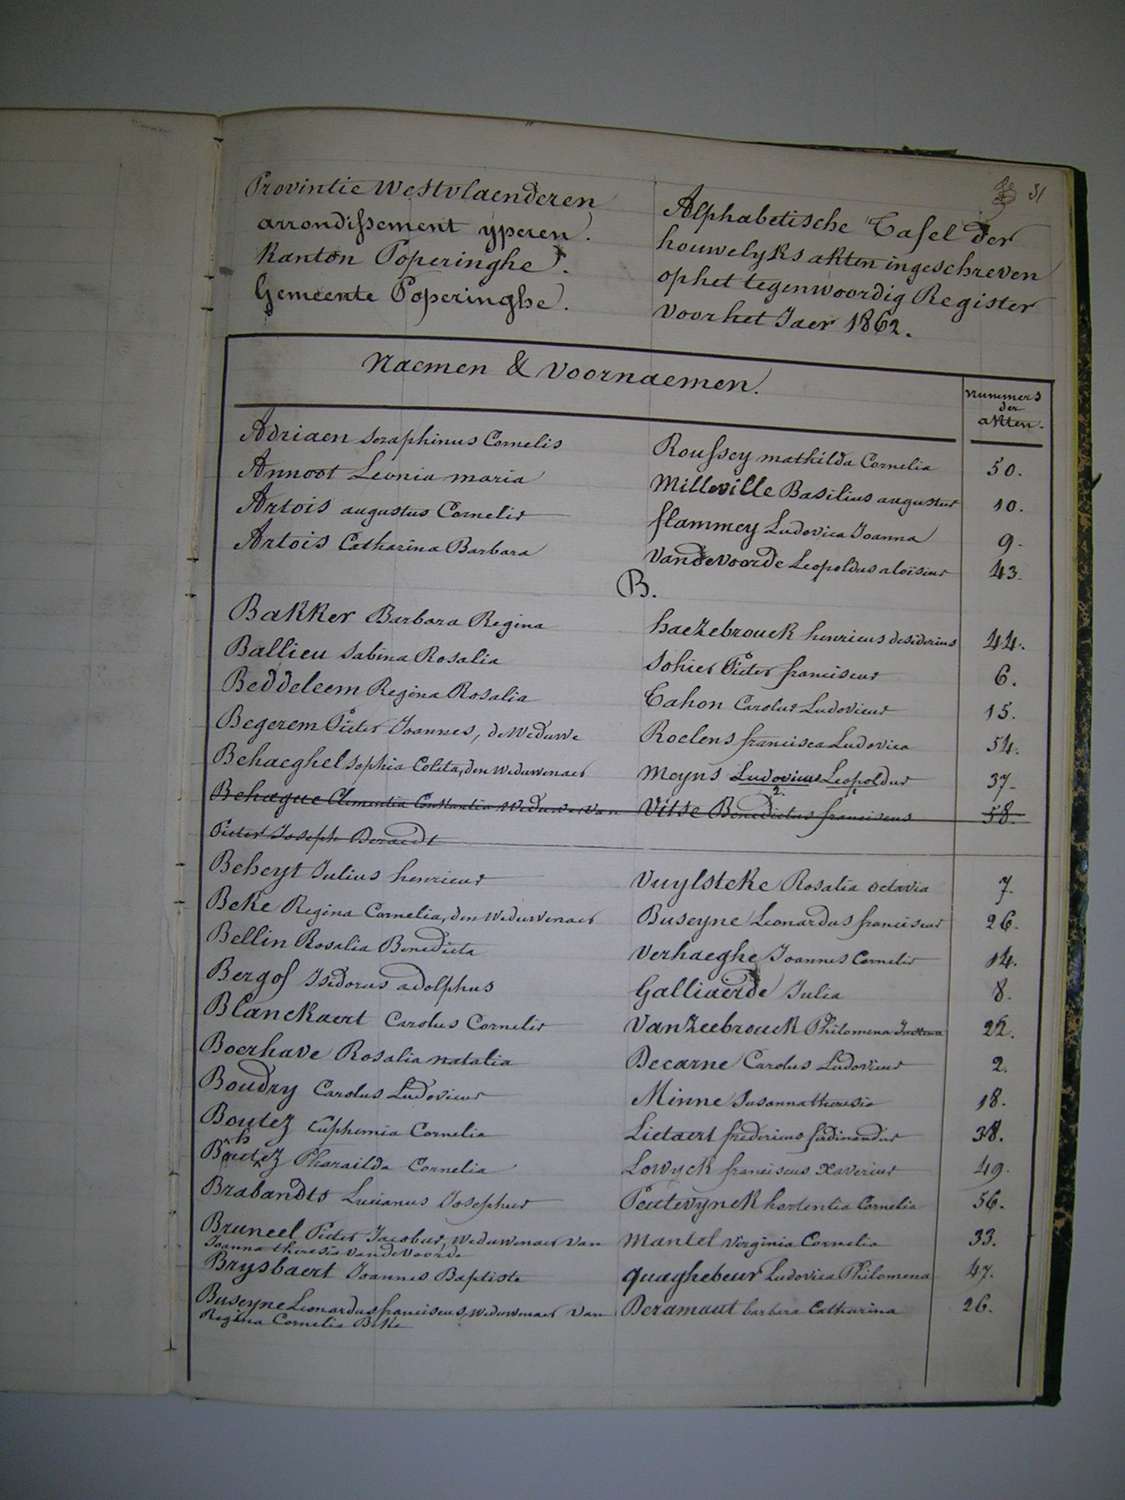 31
Provintie Westvlaenderen
arrondissement yperen.
Kanton Poperinghe.
Gemeente Poperinghe.
Alphabetische Tafel der
houwelyks akten ingeschreven
op het tegenwoordig Register
voor het Jaer 1862.
Naemen & Voornaemen.
nummers
der
akten.
Adriaen Seraphinus Cornelis Roussey mathilda Cornelia 50.
Annoot Leonia maria Milleville Basilius augustus 10.
Artois augustus Cornelis flammey Ludovica Joanna 9.
Artois Catharina Barbara Vandevoorde Leopoldus aloïsius 43.
B.
Bakker Barbara Regina haezebrouck henricus desiderius 44.
Ballieu Sabina Rosalia Sohier Pieter franciscus 6.
Beddeleem Regina Rosalia Cahon Carolus Ludovicus 15.
Begerem Pieter Joannes, de Weduwe Roelens francisca Ludovica 54.
Behaeghel Sophia Coleta, den Weduwenaer Meyns Ludovicus Leopoldus 37.
2. 1.
Behaegue Clementia Constantia, Weduwe Van Vitse Benedictus franciscus 58.
Pieter Joseph Beraedt
Beheyt Julius henricus Vuylsteke Rosalia octavia 7.
Beke Regina Cornelia, den Weduwenaer Buseyne Leonardus franciscus 26.
Bellin Rosalia Benedicta Verhaeghe Joannes Cornelis 14.
Bergof Isidorus adolphus Galliaerde Julia 8.
Blanckaert Carolus Cornelis Vanzeebrouck Philomena 22.
Boerhave Rosalia natalia Decarne Carolus Ludovicus 2.
Boudry Carolus Ludovicus Minne Susanna theresia 18.
Boutez Euphemia Cornelia Lietaert fredericus ferdinandus 38.
Pharaïlda Cornelia Lowyck franciscus Xaverius 49.
Brabandts Lucianus Josephus Peutevynck hortentia Cornelia 56.
Bruneel Pieter Jacobus, Weduwenaer Van Mantel Virginia Cornelia 33.
Joanna theresia Vandevoorde
Brysbaert Joannes Baptiste quaghebeur Ludovica Philomena 47.
Buseyne Leonardus franciscus, Weduwenaer Van Deramaut barbara Catharina 26.
Regina Cornelia Beke